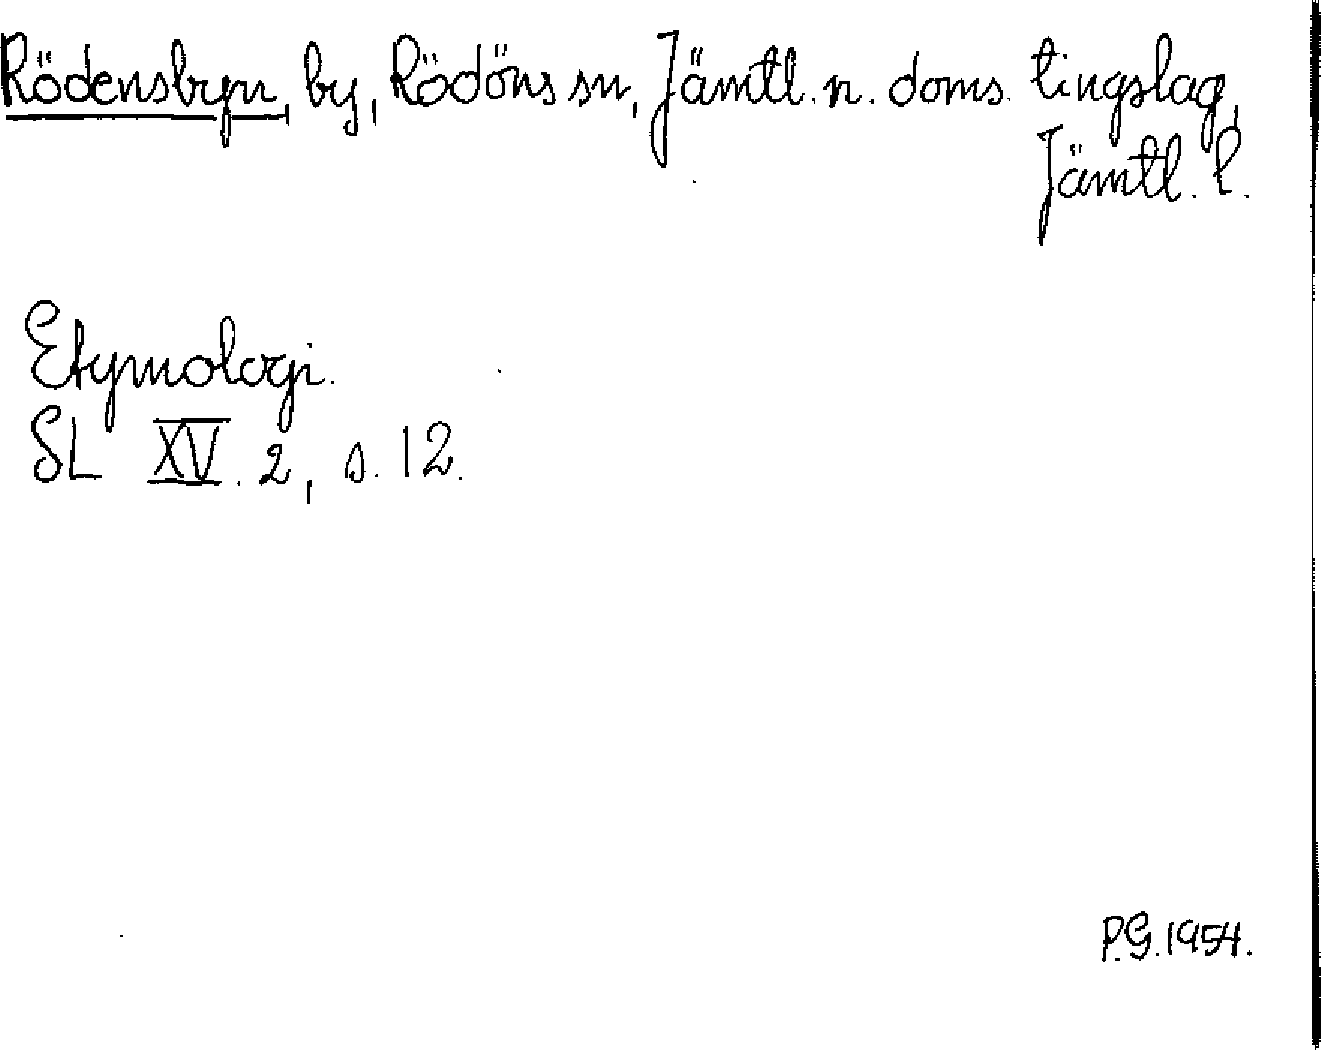 Rödensbyn, by, Rödöns sn, Jämtl. n. doms. tingslag,
Jämtl. l.
Etymologi.
SL XV. 2, s. 12.
P.G. 1954.